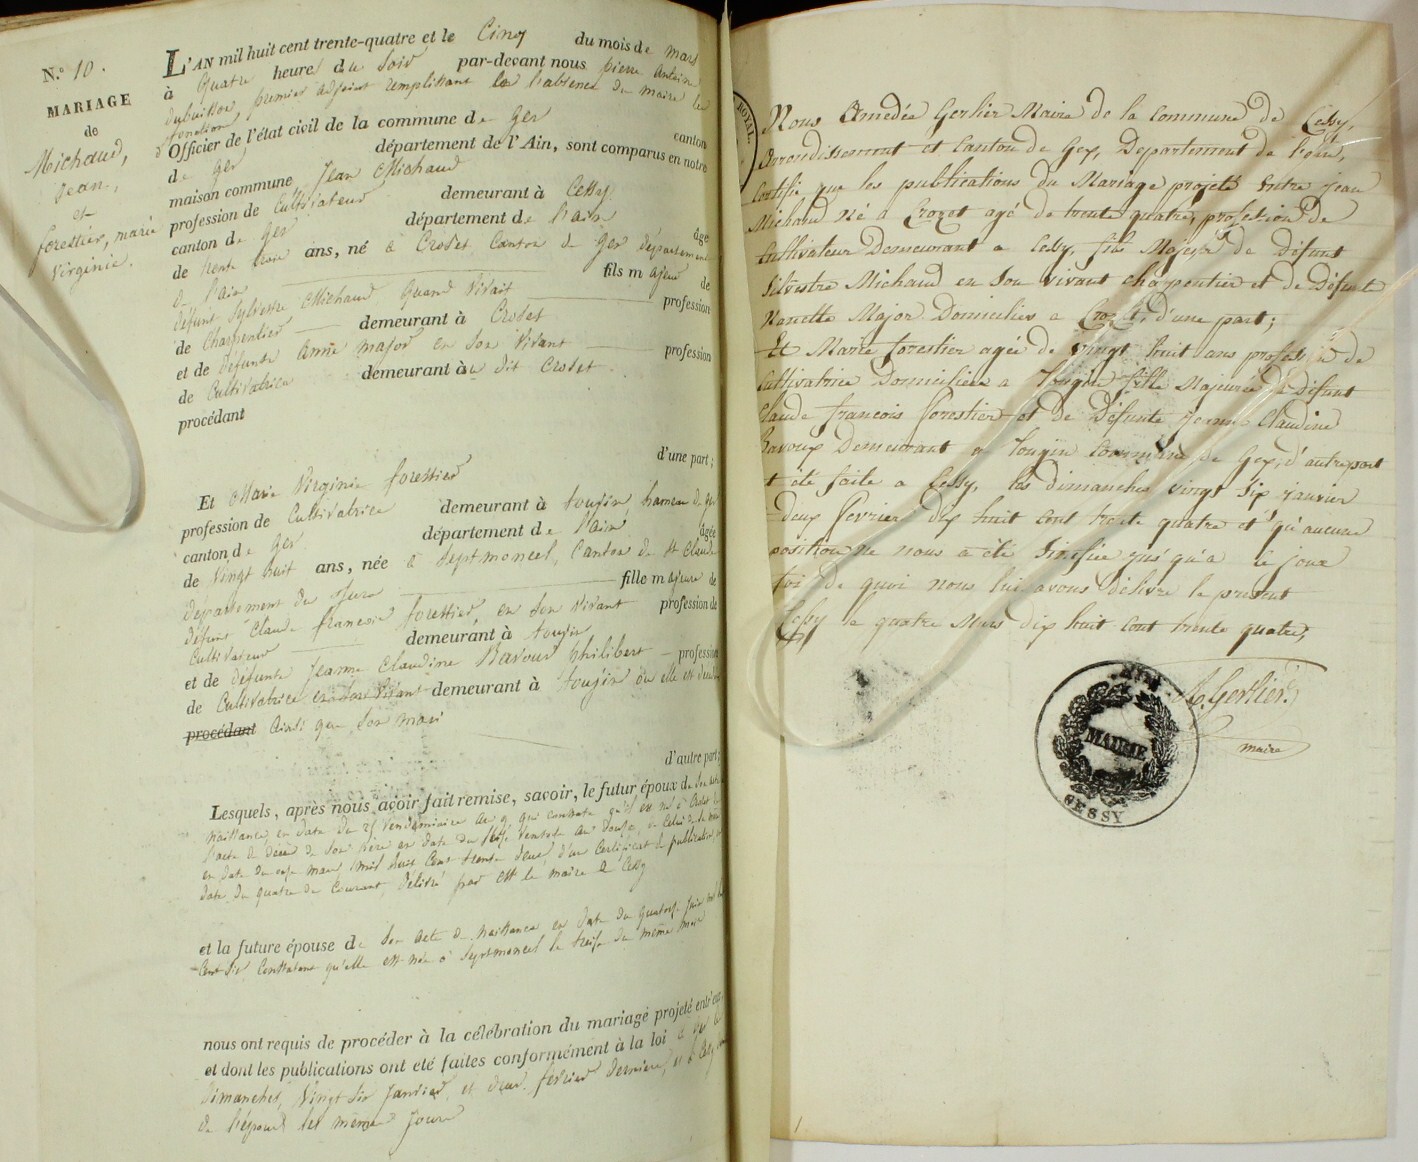 N.° 10.
MARIAGE
de
Michaud,
Jean,
et
forestier, marie
Virginie.
L'AN mil huit cent trente-quatre et le Cinq du mois de mars
à quatre heure du Soir par-devant nous pierre antoine
dubuisson, premier adjoint remplissant en l'absence du maire les
fonctions
d'Officier de l'état civil de la commune de Gex canton
de Gex département de l'Ain, sont comparus en notre
maison commune Jean Michaud
profession de Cultivateur demeurant à Cessy
canton de Gex département de l'ain âgé
de trente trois ans, né à Crozet Canton de Gex département
de l'ain fils majeur de
défunt Sylvestre Michaud quand vivait profession
de Charpentier demeurant à Crozet
et de défunte Anne major en son vivant profession
de Cultivatrice demeurant au dit Crozet.
procédant
d'une part;
Et Marie Virginie forestier
profession de Cultivatrice demeurant à tougin, hameau de Gex
canton de Gex département de l'ain âgée
de Vingt huit ans, née à Septmoncel, Canton de St Claude
département du Jura fille majeure de
défunt Claude françois forestier, en son vivant profession de
Cultivateur demeurant à tougin
et de défunte Jeanne Claudine Bavoux philibert profession
de Cultivatrice en son vivant demeurant à tougin où elle est décédée
procédant ainsi que son mari
d'autre part;
Lesquels, après nous avoir fait remise, savoir, le futur époux de Son acte
naissance en date du 25 Vendémiaire an 9 qui constate qu'il est né à Crozet
l'acte de décès de son père en date du seize Ventose an douze, de Celui de sa mère
en date du onze mars mil huit Cent trente deux, d'un Certificat de publication en
date du quatre du Courant, délivré par Mr le maire de Cessy
et la future épouse de Son acte de naissance en date du quatorze juin mil huit
Cent Six Constatant qu'elle est née à Septmoncel le treize du même mois
nous ont requis de procéder à la célébration du mariage projeté entr'eux
et dont les publications ont été faites conformément à la loi à Gex les
dimanches, Vingt Six Janvier et deux février dernier, et à Cessy
de l'époux les mêmes Jours
ROYAL
Nous Amedée Gerlier Maire de la Commune de Cessy,
Arrondissement et Canton de Gex, Departement de l'ain,
Certifie que les publications du Mariage projeté Entre jean
Michaud Né a Crozet agé de trente quatre, profession de
Cultivateur Demeurant a Cessy, fils Majeur de Défunt
Silvestre Michaud en Son vivant charpentier et de Défunte
Nanette Major Domicilies a Crozet, d'une part;
Et Marie forestier agée de vingt huit ans profession de
Cultivatrice Domiciliée a Tougin fille Majeure de Défunt
Claude francois forestier et de Défunte Jeanne Claudine
Bavoux Demeurant a Tougin Commune de Gex, d'autre part
t été faite a Cessy, les dimanches vingt six janvier
deux fevrier dix huit cent trente quatre et qu'aucune
position ne nous a été Sinifiée jus'qu'a ce jour
foi de quoi nous lui avons délivré le present
Cessy le quatre Mars dix huit cent trente quatre,
A. Gerlier
maire
MAIRIE
CESSY